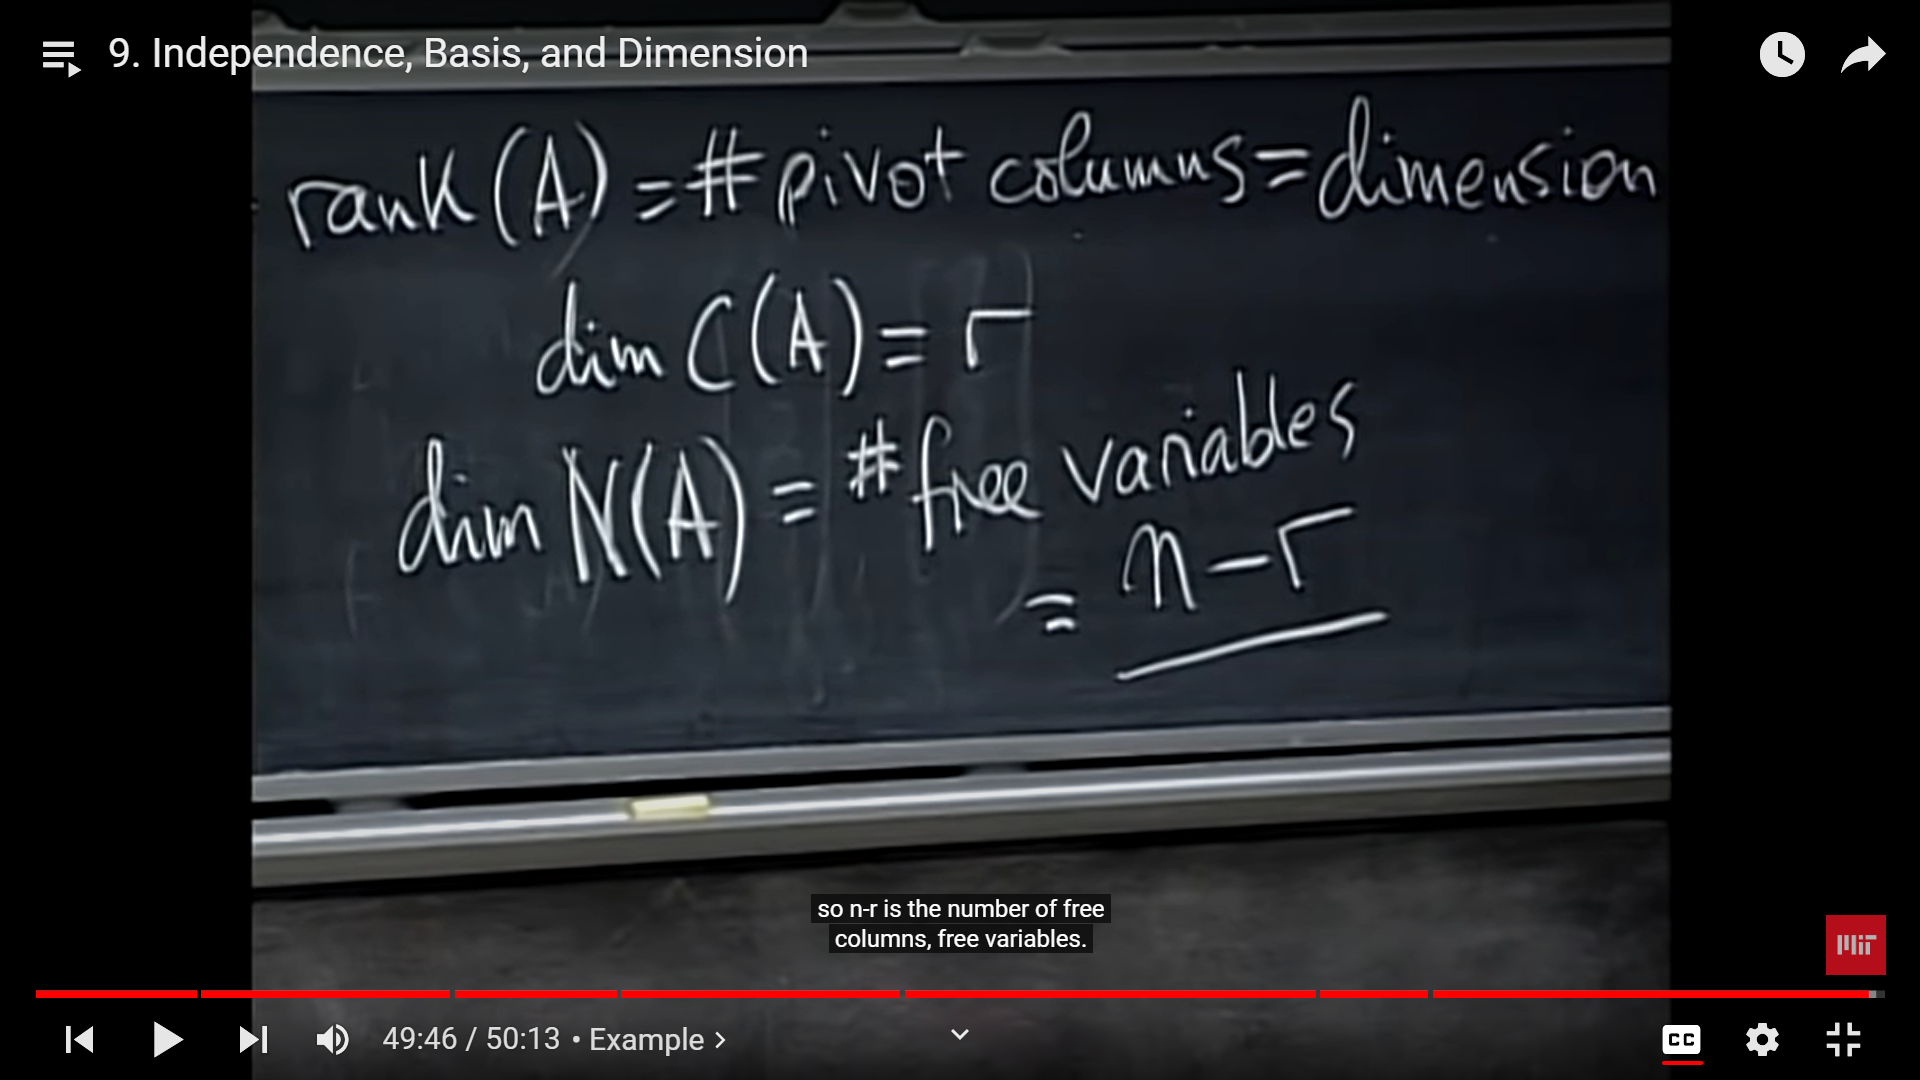 9. Independence, Basis, and Dimension
rank(A) = # pivot columns = dimension
dim C(A) = r
dim N(A) = # free variables
= n - r
so n-r is the number of free
columns, free variables.
MIT
49:46 / 50:13 • Example >
CC